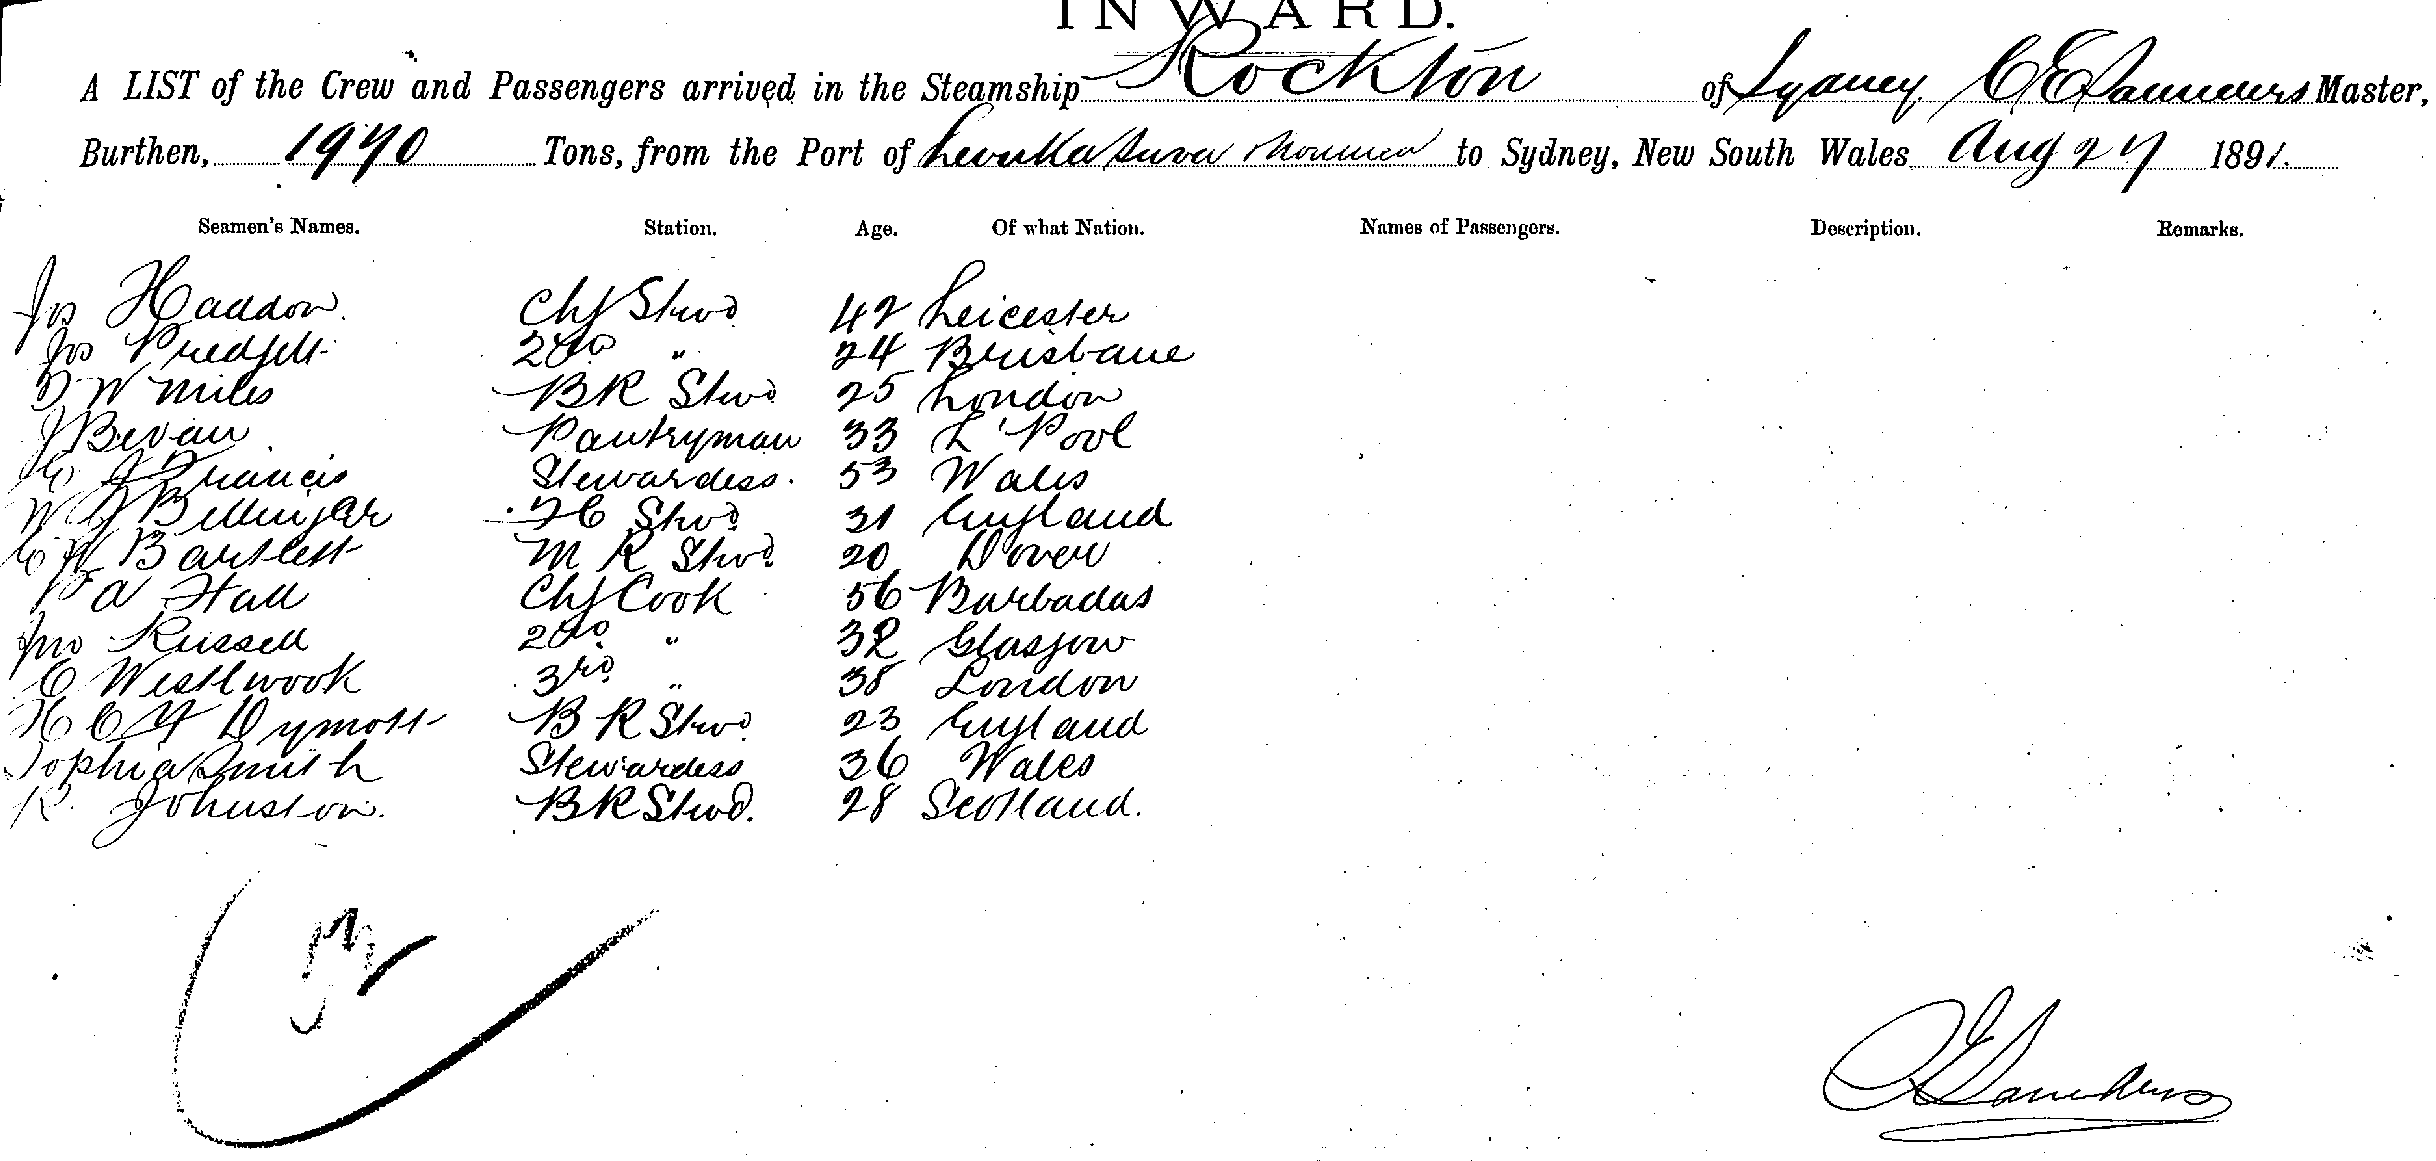 INWARD.
A LIST of the Crew and Passengers arrived in the Steamship Rockton of Sydney C E Saunders Master,
Burthen, 1970 Tons, from the Port of Levuka Suva Noumea to Sydney, New South Wales Aug 27 1891.
Seamen's Names. Station. Age. Of what Nation. Names of Passengers. Description. Remarks.
Jos Haddon. Chf Stwd 42 Leicester
Jos 2nd " 24 Brisbane
W Miles BR Stwd 25 London
J Bevan Pantryman 33 L'Pool
J Francis Stewardess. 53 Wales
W J Bellinger FC Stwd 31 England
Bartlett M R Stwd 20 Dover
P A Hall Chf Cook 56 Barbadas
Jno Russell 2nd " 32 Glasgow
C Westbrook 3rd " 38 London
H C Dymott B R Stwd 23 England
Sophia Smith Stewardess 36 Wales
R. Johnston. BR Stwd. 28 Scotland.
C E Saunders